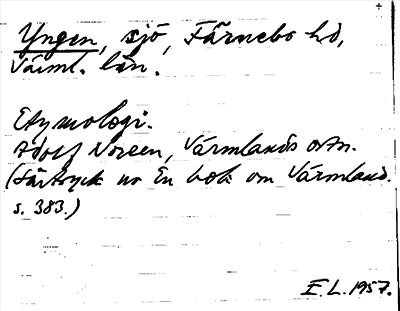 Yngen, sjö, Färnebo hd,
Värml. län.
Etymologi.
Adolf Noreen, Värmlands ortn.
(Särtryck ur En bok om Värmland.
s. 383.)
E.L. 1957.